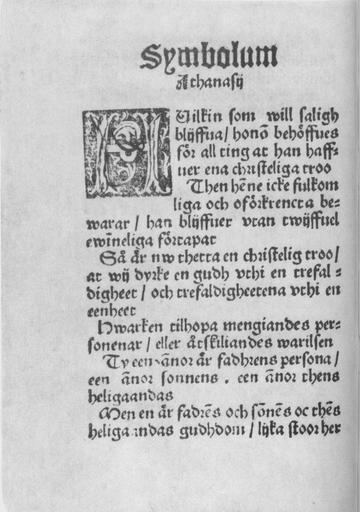 Symbolum
Athanasij
HUilkin som will saligh
blijffua / honō behöffues
för all ting at han haff-
uer ena christeliga troo
Then hēne icke fulkom
liga och oförkrencta be-
warar / han blijffuer vtan twijffuel
ewineliga förtapat
Så är nw thetta en christelig troo /
at wij dyrke en gudh vthi en trefal-
digheet / och trefaldigheetena vthi en
eenheet
Hwarken tilhopa mengiandes per-
sonenar / eller åtskiliandes warilsen
Ty een ānor är fadhrens persona /
een ānor sonnens . een ānor thens
heligaandas
Men en är fadrēs och sōnēs oc thēs
heligaandas gudhdom / lijka stoor her